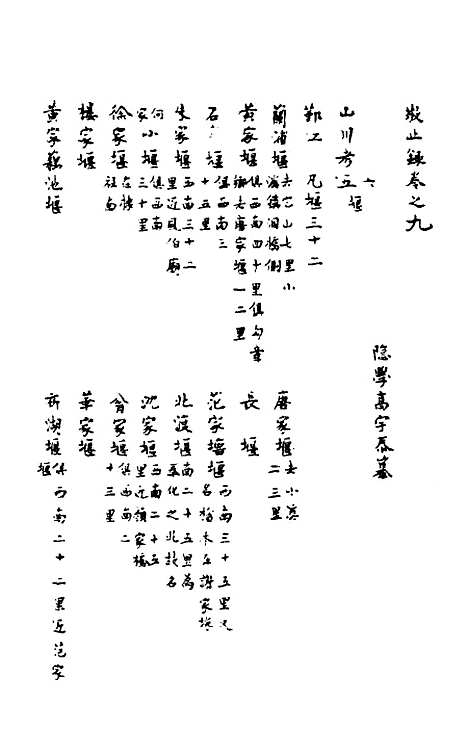 敬止録卷之九
隐學高宇泰纂
山川考五 六 堰
鄞江 凡堰三十二
蘭浦堰 去它山七里小溪後洞橋側 唐家堰 去小溪二三里
黄家堰 俱西南四十里俱句章鄉去唐家堰一二里 長 堰
石 堰 俱西南三十五里 范家堰 西南三十五里又名 謝家堰
朱家堰 西南三十二里近貝伯廟 北渡堰 南二十五里為奉化之北故名
何家小堰 俱西南三十里 沈家堰 西南二十五里近領家橋
徐家堰 在樓社南 翁家堰 俱西南二十三里
樓家堰 華家堰
黄家藕池堰 新湖堰 俱西南二十二里近范家堰